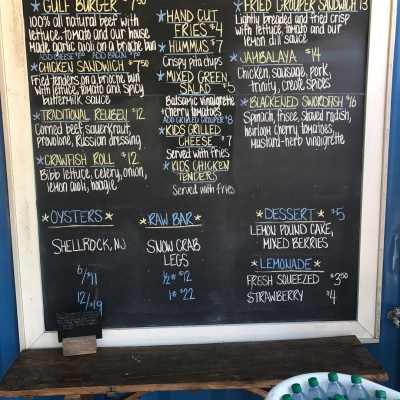 GULF BURGER $7.50
100% all natural beef with
lettuce, tomato and our house
made garlic aioli on a brioche bun
CHICKEN SANDWICH $7.50
Fried tenders on a brioche bun
with lettuce, tomato and spicy
buttermilk sauce
TRADITIONAL REUBEN $12
Corned beef, sauerkraut,
provolone, Russian dressing
CRAWFISH ROLL $12
Bibb lettuce, celery, onion,
lemon aioli, hoagie
HAND CUT
FRIES $4
HUMMUS $7
Crispy pita chips
MIXED GREEN
SALAD $5
Balsamic vinaigrette
+ cherry tomatoes
ADD GRILLED GROUPER $8
KIDS GRILLED
CHEESE $7
Served with fries
KIDS CHICKEN
TENDERS
Served with fries
FRIED GROUPER SANDWICH 13
Lightly breaded and fried crisp
with lettuce, tomato and our
lemon dill sauce
JAMBALAYA $14
Chicken, sausage, pork,
trinity, creole spices
BLACKENED SWORDFISH $16
Spinach, frisee, shaved radish,
heirloom cherry tomatoes,
mustard-herb vinaigrette
OYSTERS
SHELLROCK, NJ
6/$11
12/$19
RAW BAR
SNOW CRAB
LEGS
1/2# $12
1# $22
DESSERT $5
LEMON POUND CAKE,
MIXED BERRIES
LEMONADE
FRESH SQUEEZED $3.50
STRAWBERRY $4